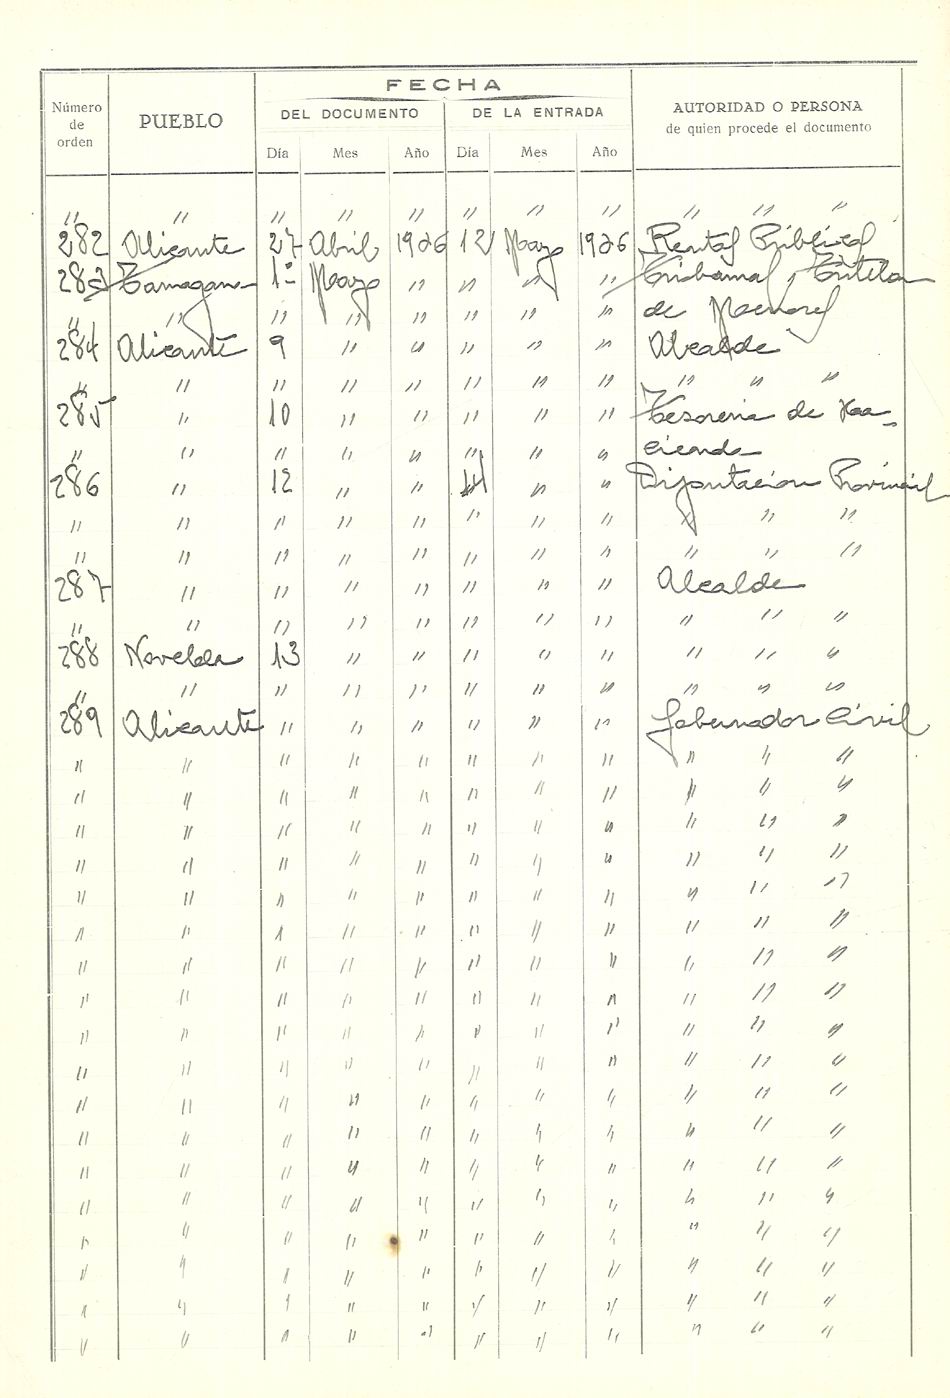 FECHA
Número de orden PUEBLO DEL DOCUMENTO DE LA ENTRADA AUTORIDAD O PERSONA de quien procede el documento
Día Mes Año Día Mes Año
" " " " " " " " " " "
282 Alicante 27 Abril 1926 12 Mayo 1926 Rentas Públicas
283 1º Mayo " " " " Tribunal Tutelar
" " " " " " " " de Menores
284 Alicante 9 " " " " " Alcalde
" " " " " " " " " " "
285 " 10 " " " " " Tesoreria de Haa-
" " " " " " " " cienda
286 " 12 " " 14 " " Diputación Provincial
" " " " " " " " " " "
" " " " " " " " " " "
287 " " " " " " " Alcalde
" " " " " " " " " " "
288 Novelda 13 " " " " " " " "
" " " " " " " " " " "
289 Alicante " " " " " " Gobernador Civil
" " " " " " " " " " "
" " " " " " " " " " "
" " " " " " " " " " "
" " " " " " " " " " "
" " " " " " " " " " "
" " " " " " " " " " "
" " " " " " " " " " "
" " " " " " " " " " "
" " " " " " " " " " "
" " " " " " " " " " "
" " " " " " " " " " "
" " " " " " " " " " "
" " " " " " " " " " "
" " " " " " " " " " "
" " " " " " " " " " "
" " " " " " " " " " "
" " " " " " " " " " "
" " " " " " " " " " "